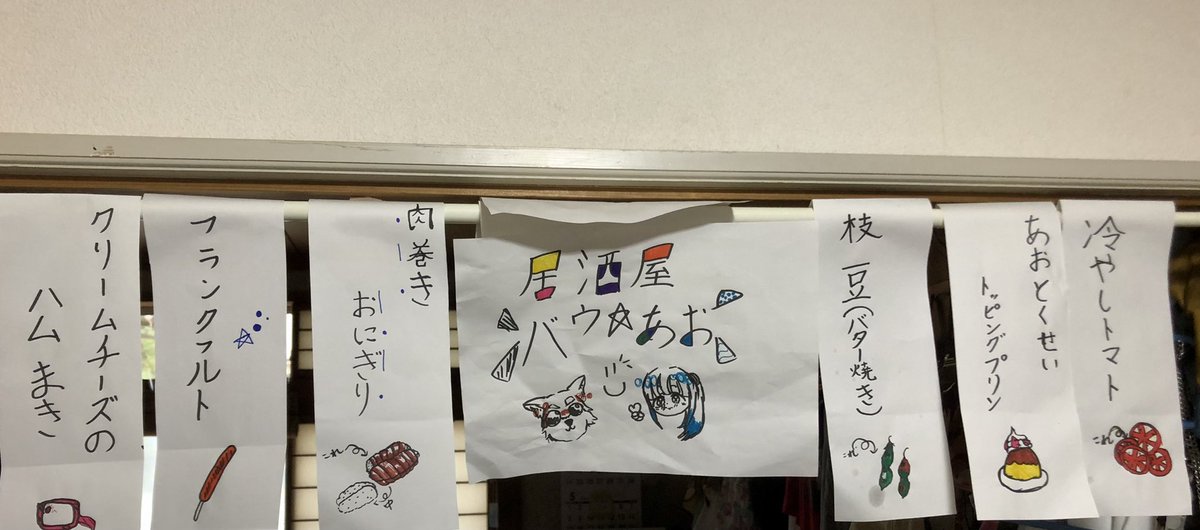 冷やしトマト
これ
あおとくせい
トッピングプリン
枝豆(バター焼き)
これ
居酒屋
バウ☆あお
肉巻き
おにぎり
これ
フランクフルト
クリームチーズの
ハムまき